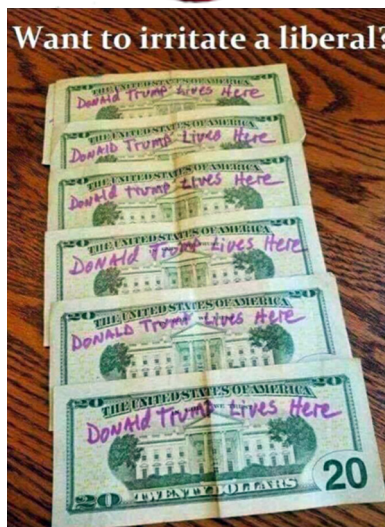 Want to irritate a liberal?
THE UNITED STATES OF AMERICA
DONAld Trump Lives Here
THE UNITED STATES OF AMERICA
DONAlD Trump Lives Here
THE UNITED STATES OF AMERICA
DONAld trump Lives Here
20 THE UNITED STATES OF AMERICA 20
DONAld Trump Lives Here
20 THE UNITED STATES OF AMERICA 20
DONALD Trump Lives Here
20 THE UNITED STATES OF AMERICA 20
DONAld Trump Lives Here
20 TWENTY DOLLARS 20